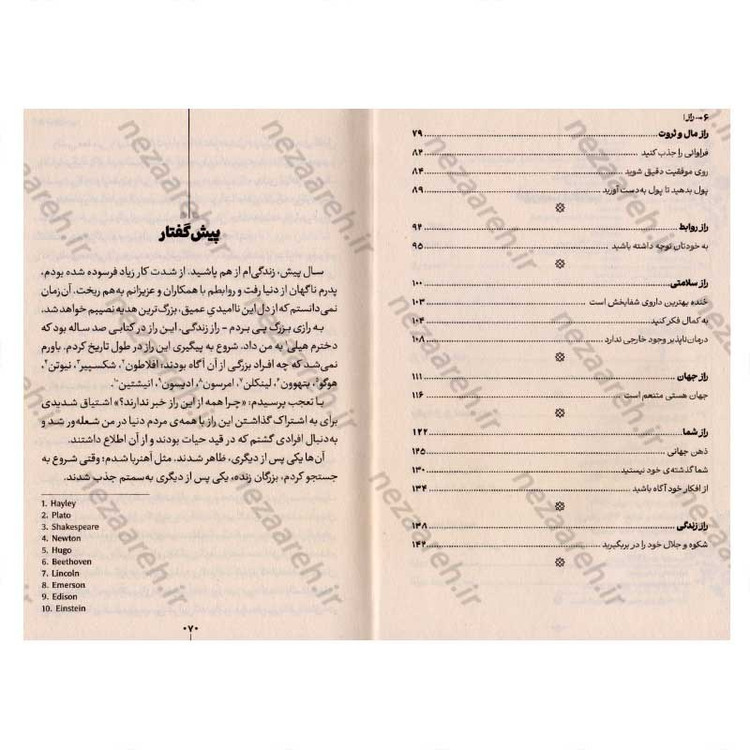 ۶ ـــ راز |
راز مال و ثروت ........ ۷۹
فراوانی را جذب کنید ........ ۸۳
روی موفقیت دقیق شوید ........ ۸۴
پول بدهید تا پول به‌دست آورید ........ ۸۹
راز روابط ........ ۹۲
به خودتان توجه داشته باشید ........ ۹۵
راز سلامتی ........ ۱۰۰
خنده بهترین داروی شفابخش است ........ ۱۰۳
به کمال فکر کنید ........ ۱۰۴
درمان‌ناپذیر وجود خارجی ندارد ........ ۱۰۸
راز جهان ........ ۱۱۱
جهان هستی متنعم است ........ ۱۱۶
راز شما ........ ۱۲۲
ذهن جهانی ........ ۱۲۵
شما گذشته‌ی خود نیستید ........ ۱۳۰
از افکار خود آگاه باشید ........ ۱۳۴
راز زندگی ........ ۱۳۸
شکوه و جلال خود را در بربگیرید ........ ۱۴۲
پیش‌گفتار
سال پیش، زندگی‌ام از هم پاشید. از شدت کار زیاد فرسوده شده بودم،
پدرم ناگهان از دنیا رفت و روابطم با همکاران و عزیزانم به‌هم ریخت. آن‌زمان
نمی‌دانستم که از دل این ناامیدی عمیق، بزرگ‌ترین هدیه نصیبم خواهد شد.
به رازی بزرگ پی بردم - راز زندگی. این راز در کتابی صد ساله بود که
دخترم هیلی۱ به من داد. شروع به پیگیری این راز در طول تاریخ کردم. باورم
نمی‌شد که چه افراد بزرگی از آن آگاه بودند: افلاطون۲، شکسپیر۳، نیوتن۴،
هوگو۵، بتهوون۶، لینکلن۷، امرسون۸، ادیسون۹، انیشتین۱۰.
با تعجب پرسیدم: «چرا همه از این راز خبر ندارند؟» اشتیاق شدیدی
برای به اشتراک گذاشتن این راز با همه‌ی مردم دنیا در من شعله‌ور شد و
به‌دنبال افرادی گشتم که در قید حیات بودند و از آن اطلاع داشتند.
آن‌ها یکی پس از دیگری، ظاهر شدند. مثل آهنربا شدم؛ وقتی شروع به
جستجو کردم، بزرگان زنده، یکی پس از دیگری به‌سمتم جذب شدند.
1. Hayley
2. Plato
3. Shakespeare
4. Newton
5. Hugo
6. Beethoven
7. Lincoln
8. Emerson
9. Edison
10. Einstein
۰۷۰
nezaareh.ir
nezaareh.ir
nezaareh.ir
nezaareh.ir
nezaareh.ir
nezaareh.ir
nezaareh.ir
nezaareh.ir
nezaareh.ir